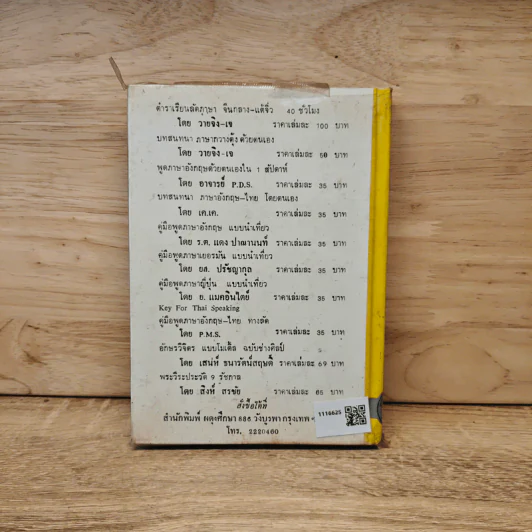 ตำราเรียนลัดภาษา จีนกลาง-แต้จิ๋ว 40 ชั่วโมง
โดย วายจิง-เจ ราคาเล่มละ 100 บาท
บทสนทนา ภาษากวางตุ้ง ด้วยตนเอง
โดย วายจิง-เจ ราคาเล่มละ 50 บาท
พูดภาษาอังกฤษด้วยตนเองใน 1 สัปดาห์
โดย อาจารย์ P.D.S. ราคาเล่มละ 35 บาท
บทสนทนา ภาษาอังกฤษ-ไทย โดยตนเอง
โดย เค.เค. ราคาเล่มละ 35 บาท
คู่มือพูดภาษาอังกฤษ แบบนำเที่ยว
โดย ร.ต. แดง ปาฌานนท์ ราคาเล่มละ 35 บาท
คู่มือพูดภาษาเยอรมัน แบบนำเที่ยว
โดย ยส. ปรัชญากุล ราคาเล่มละ 35 บาท
คู่มือพูดภาษาญี่ปุ่น แบบนำเที่ยว
โดย ย. แมคอินไตย์ ราคาเล่มละ 35 บาท
Key For Thai Speaking
คู่มือพูดภาษาอังกฤษ-ไทย ทางลัด
โดย P.M.S. ราคาเล่มละ 35 บาท
อักษรวิจิตร แบบโมเดิ้ล ฉบับช่างศิลป์
โดย เสน่ห์ ธนารัตน์สฤษดิ์ ราคาเล่มละ 69 บาท
พระวีระประวัติ 9 รัชกาล
โดย สิงห์ สรชัย ราคาเล่มละ 65 บาท
สั่งซื้อได้ที่
สำนักพิมพ์ ผดุงศึกษา 886 วังบูรพา กรุงเทพ
โทร. 2220460
1110625